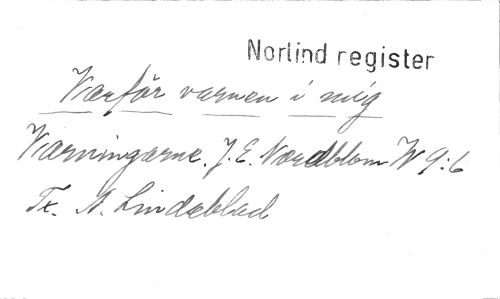 Norlind register
Varför varnen i mig
Varningarne. J. E. Nordblom W 9:6
Tx. A. Lindeblad